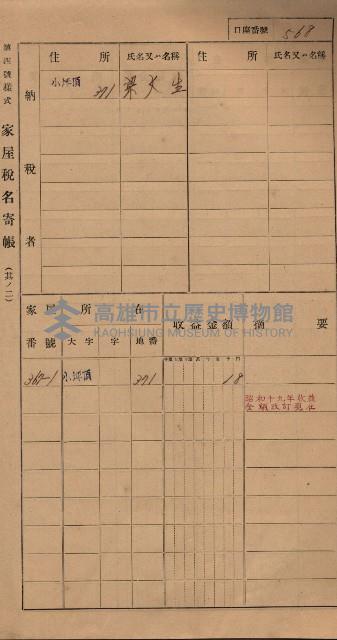 口座番號 568
第四號樣式
家屋稅名寄帳
(其ノ二)
納稅者
住所 氏名又ハ名稱 住所 氏名又ハ名稱
小坪頂 371 梁天生
高雄市立歷史博物館
KAOHSIUNG MUSEUM OF HISTORY
家屋所在 收益金額 摘要
番號 大字 字 地番
367-1 小坪頂 371 18
昭和十九年收益
金額改訂現在